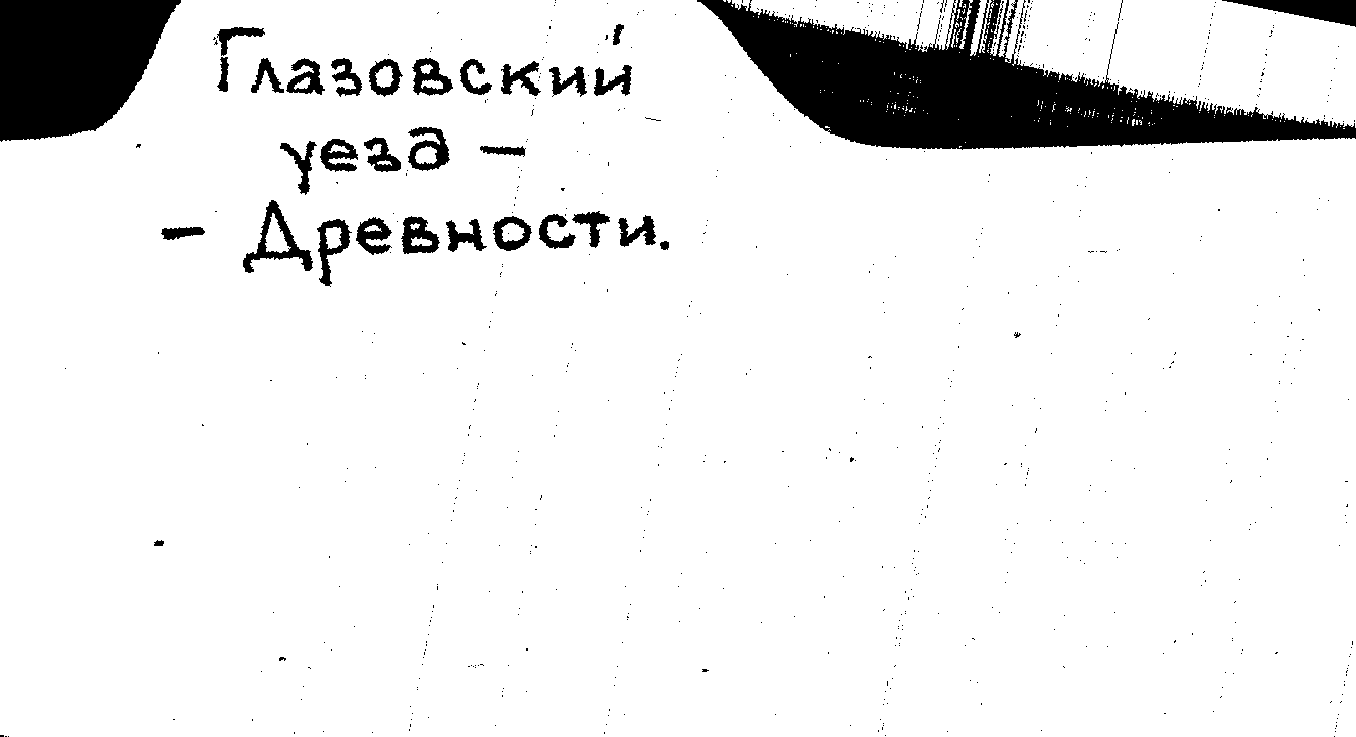 Глазовский
уезд —
— Древности.